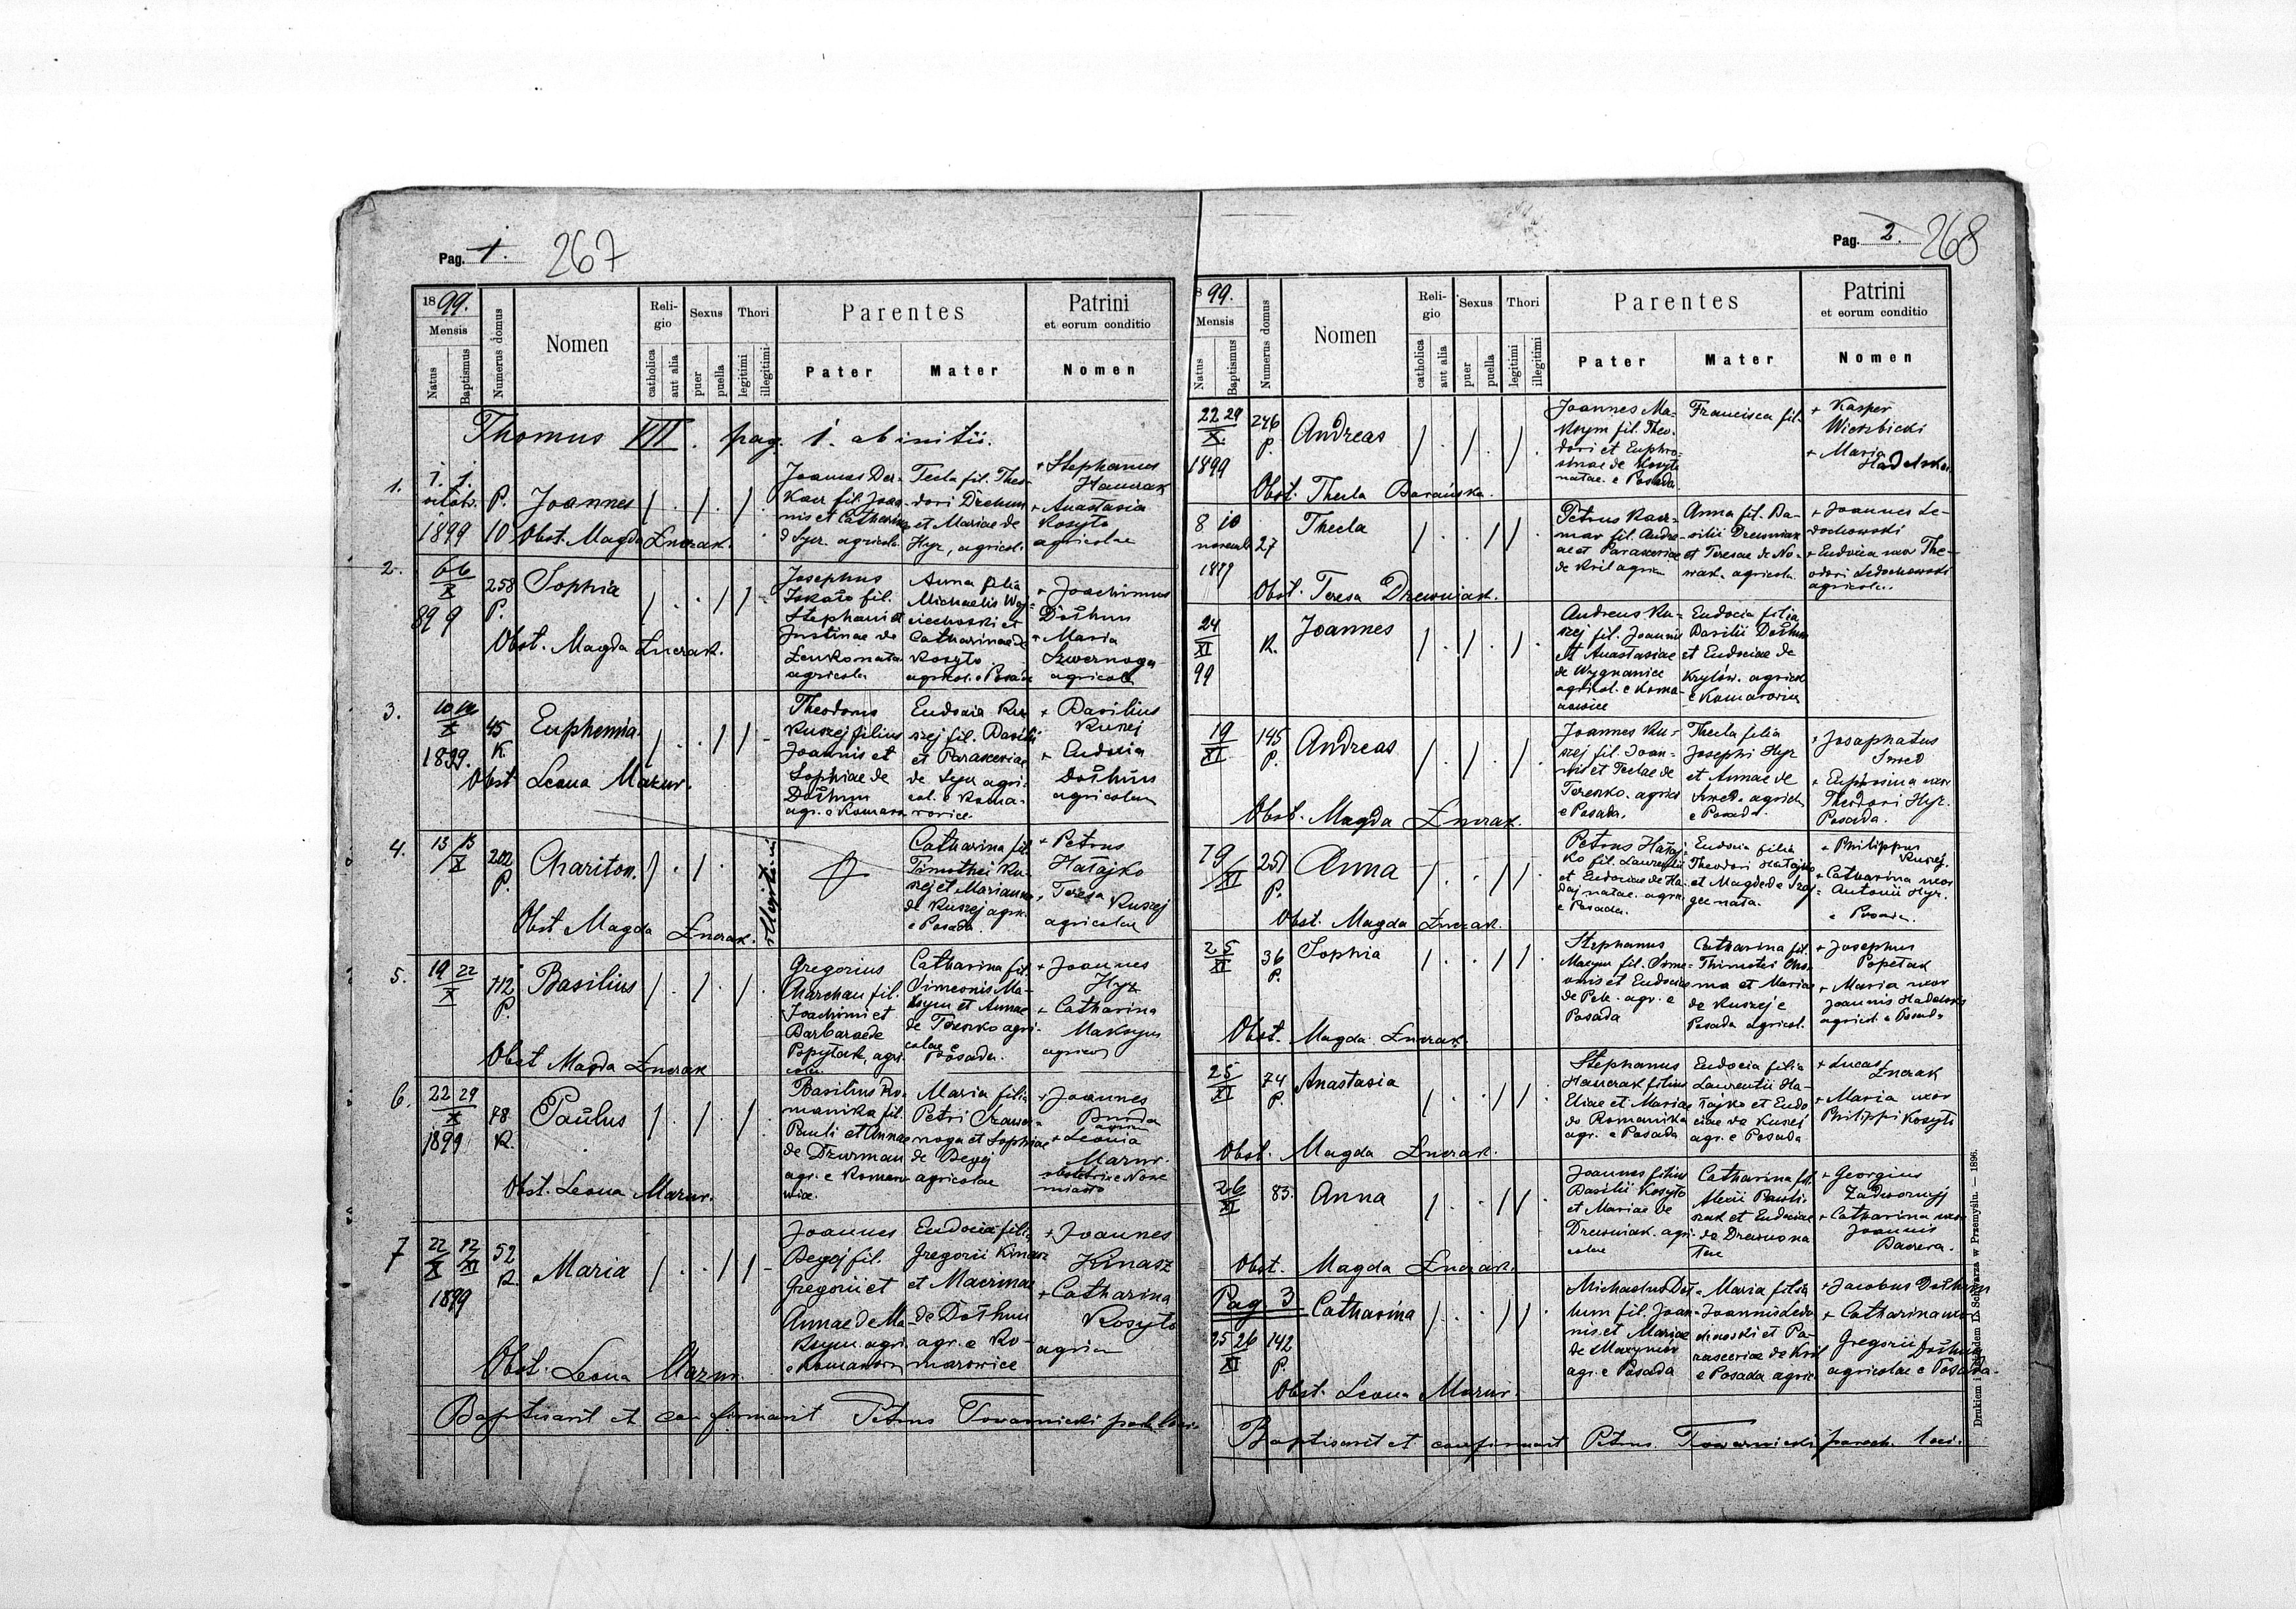 Pag. 1.
267
1899.
Mensis
Natus
Baptismus
Numerus domus
Nomen
Religio
catholica
aut alia
Sexus
puer
puella
Thori
legitimi
illegitimi
Parentes
Pater
Mater
Patrini
et eorum conditio
Nomen
Thomus VII. pag. 1. ab initii.
1.
1. 1.
octob.
1899
P.
10
Joannes
Obst. Magda
fil. Joannis et Catharinae
agricolae
Tecla fil. Theodori
et Mariae de
Hyz, agricol.
+ Stephanus
Hanczak
+ Anastasia
Kosyto
agricolae
2.
6 6
X
899
258
P.
Sophia
Obst. Magda
Josephus
fil.
Stephani et
Justinae de
agricolae
Anna filia
Michaelis
et
Catharinae de
Kosyto
agricol. e Posada
+ Joachimus
Dołhun
+ Maria
agricolae
3.
10
X
1899.
45
K
Euphemia.
Obst Leona Mazur.
Theodorus
Kuszej filius
Joannis et
Sophiae de
Dołhun
Eudocia Kuszej
fil. Basilii
et Parasceviae
de
+ Basilius
Kuszej
+ Eudocia
Dołhun
agricolae
4.
13 13
X
202
P.
Chariton.
Obst Magda
illegitimi
Catharina fil.
Timothei Kuszej
et Marianna
de Kuszej agric.
e Posada.
+ Petrus
Hałajko
+ Teresa Kuszej
agricolae
5.
19 22
X
112
P.
Basilius
Obst Magda
Gregorius
fil.
Joachimi et
Barbarae de
Popytak, agricolae
Catharina fil.
Simeonis Maksym
et Annae
de Terenko agricolae
e Posada.
+ Joannes
Hyz
+ Catharina
Maksym
agricol
6.
22 29
X
1899
78
K.
Paulus
Obst. Leona Mazur.
Basilius Romanika
fil.
Pauli et Annae
de
Maria filia
Petri
et Sophiae
de Begej
agricolae
+ Joannes
+ Leonia
Mazur.
obstetrix e Nowe
miasto
7
22 12
X XI
1899
52
K.
Maria
Obst. Leona Mazur.
Joannes
Begej fil.
Gregorii et
Annae de Maksym
agri.
Eudocia filia
Gregorii Kinasz
et Macrinae
de Dołhun
agr. e Komarowice
+ Joannes
Kinasz
+ Catharina
Kosyto
Baptisavit et confirmavit Petrus Towarnicki paroch. loci.
Pag. 2.
268
1899.
Mensis
Natus
Baptismus
Numerus domus
Nomen
Religio
catholica
aut alia
Sexus
puer
puella
Thori
legitimi
illegitimi
Parentes
Pater
Mater
Patrini
et eorum conditio
Nomen
22 29
X.
1899
246
P.
Andreas
Obst. Thecla Barańska.
Joannes Maksym
fil. Theodori
et Euphrosinae
de Kosyto
natae. e Posada.
Francisca fil.
+ Kasper
Wierzbicki
+ Maria
8 10
novemb
1899
27
Thecla
Obst. Teresa Drewniak.
Petrus
fil. Andreae
et Parasceviae
de Kril agric
Anna fil. Basilii
Drewniak
et Teresae de Nowak.
agricolae
+ Joannes Ledochowski
+ Eudocia uxor Theodori
Ledochowski
agricolae.
24
XI
99
K.
Joannes
Andreas Kuszej
fil. Joannis
et Anastasiae
de Wygnanice
agricol. e Komarowice
Eudocia filia
Basilii Dołhun
et Eudociae de
Krylów. agricol
e Komarowice
19
XI
145
P.
Andreas
Obst. Magda
Joannes Kuszej
fil. Joannis
et Teclae de
Terenko. agricol
e Posada.
Thecla filia
Josephi Hyz
et Annae de
Szwed. agricol.
e Posada.
+ Josaphatus
Szwed
+ Euphrosina uxor
Theodori Hyz.
Posada.
19
XI
251
P.
Anna
Obst. Magda
Petrus Hałajko
fil. Laurentii
et Eudociae de
natae. agric.
e Posada.
Eudocia filia
Theodori Hałajko
et Magdae de
nata.
+ Philippus
Kuszej.
+ Catharina uxor
Antonii Hyz.
e Posada.
25
XI
36
P.
Sophia
Obst. Magda
Stephanus
Maksym fil. Simeonis
et Eudociae
agr. e
Posada
Catharina fil.
Thimotei
et Mariae
de Kuszej e
Posada agricol.
+ Josephus
Popetak
+ Maria uxor
Joannis
agricol. e Posada
25
XI
74
P.
Anastasia
Obst. Magda
Stephanus
Hanczak filius
Eliae et Mariae
de Romanika
agr. e Posada
Eudocia filia
Laurentii Hałajko
et Eudociae
de Kuszej
agr. e Posada
+ Lucas
+ Maria uxor
Philippi Kosyto
26
XI
83.
Anna
Obst. Magda
Joannes filius
Basilii Kosyto
et Mariae de
Drewniak. agricolae
Catharina fil.
Alexii
et Eudociae
de
+ Georgius
Zadworny
+ Catharina uxor
Joannis
Pag 3
25 26
XI
142
P.
Catharina
Obst. Leona Mazur.
Michaelus Dołhun
fil. Joannis
et Mariae
de
agr. e Posada
Maria filia
Joannis Ledochowski
et Parasceviae
de Kril
e Posada agric
+ Jacobus Dołhun
+ Catharina uxor
Gregorii Dołhun
agricolae e Posada.
Baptisavit et confirmavit Petrus Towarnicki paroch. loci.
Drukiem i L. Schwarza w Przemyślu. — 1896.